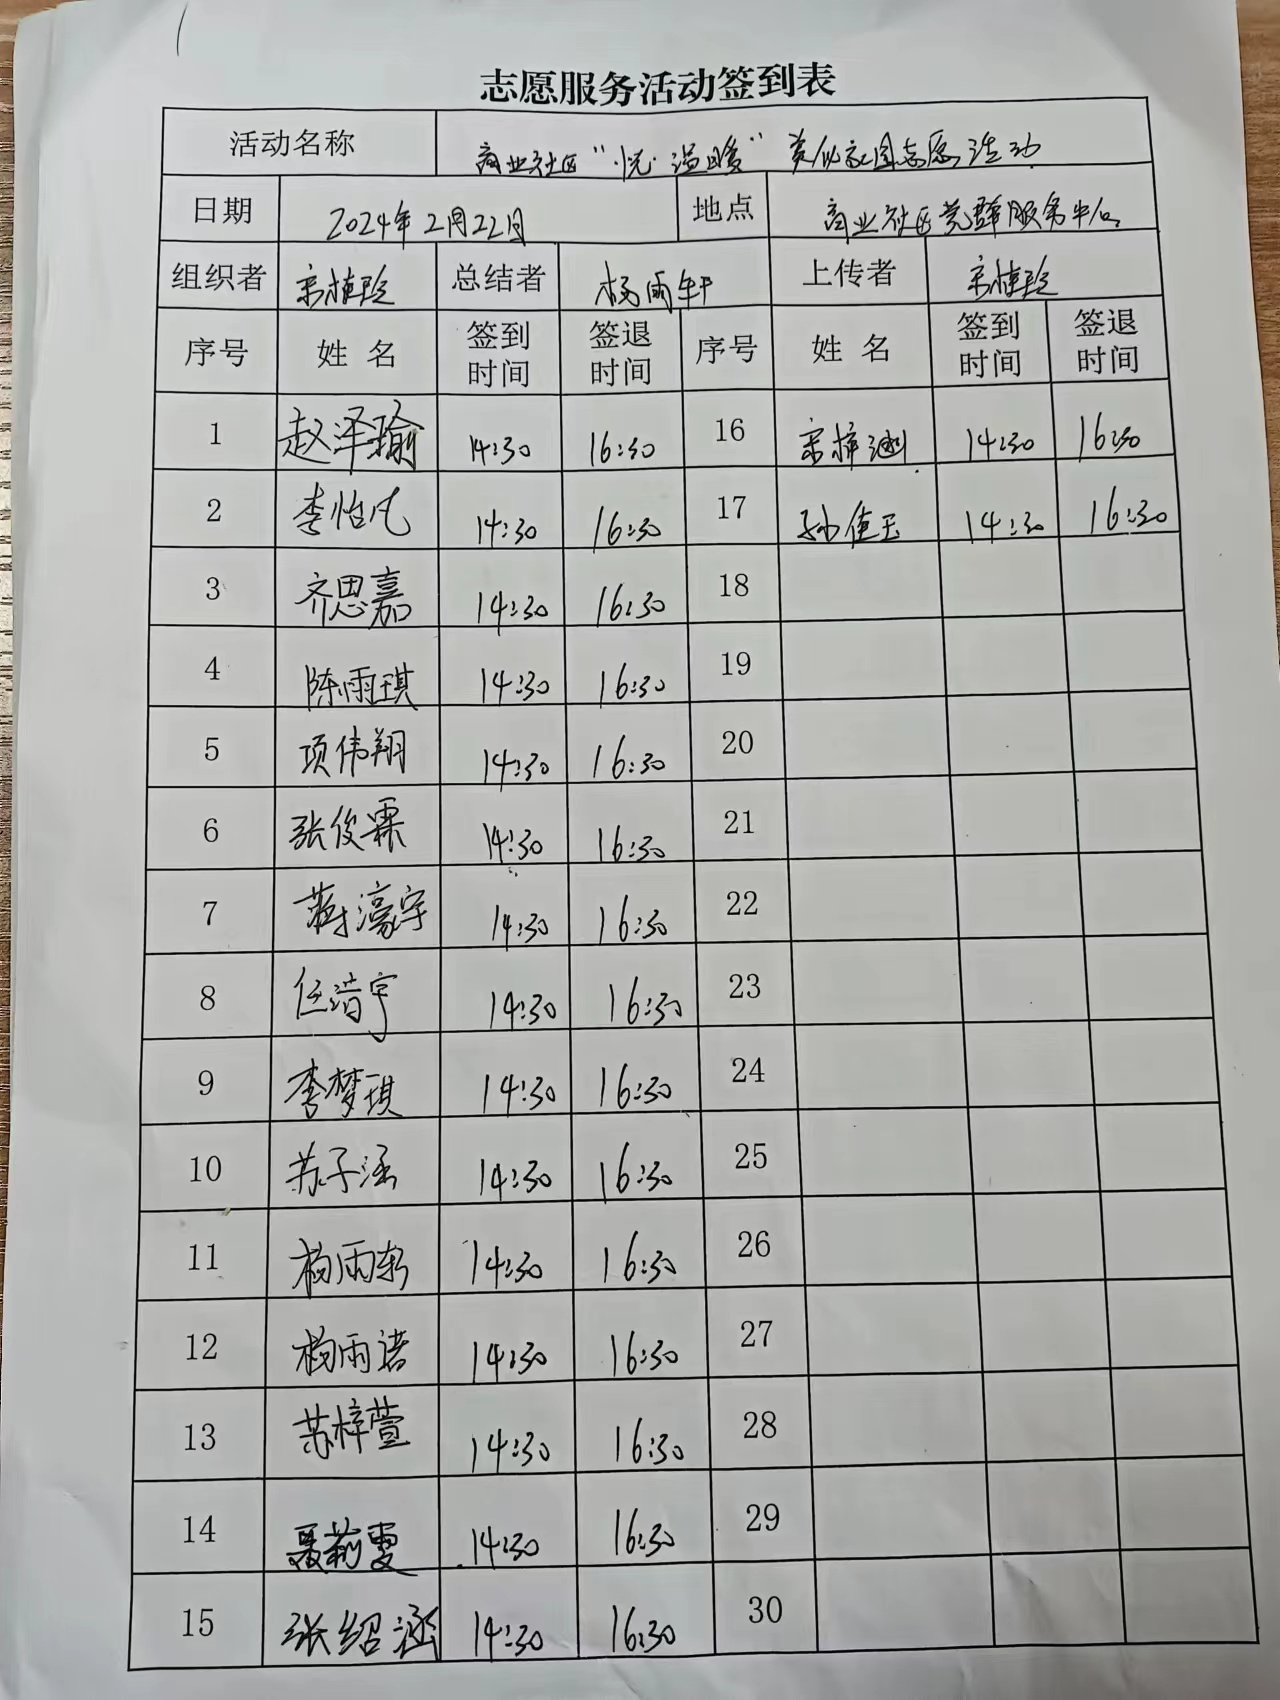 志愿服务活动签到表
活动名称 商业社区“悦·溢暖”美化家园志愿活动
日期 2024年2月22日 地点 商业社区党群服务中心
组织者 总结者 杨雨轩 上传者
序号 姓名 签到时间 签退时间 序号 姓名 签到时间 签退时间
1 赵泽瑜 14:30 16:30 16 宋梓涵 14:30 16:30
2 李怡凡 14:30 16:30 17 孙佳玉 14:30 16:30
3 齐思嘉 14:30 16:30 18
4 陈雨琪 14:30 16:30 19
5 项伟翔 14:30 16:30 20
6 张俊霖 14:30 16:30 21
7 蒋濠宇 14:30 16:30 22
8 任浩宇 14:30 16:30 23
9 李梦琪 14:30 16:30 24
10 苏子涵 14:30 16:30 25
11 杨雨轩 14:30 16:30 26
12 杨雨诺 14:30 16:30 27
13 苏梓萱 14:30 16:30 28
14 聂莉雯 14:30 16:30 29
15 张绍涵 14:30 16:30 30